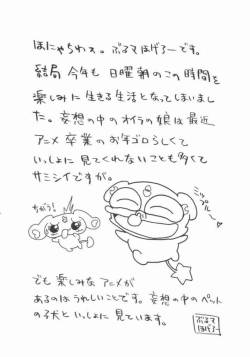 はにゃちわぁ。ぶるマほげろーです。
結局今年も日曜朝のこの時間を
楽しみに生きる生活となってしまいまし
た。妄想の中のオイラの娘は最近
アニメ卒業のお年ゴロらしくて
いっしょに見てくれないことも多くて
サミシイですが。
ミップル〜
ちがう!
でも楽しみなアニメが
あるのはうれしいことです。妄想の中のペット
の子犬といっしょに見ています。
ぶるマ
ほげろー